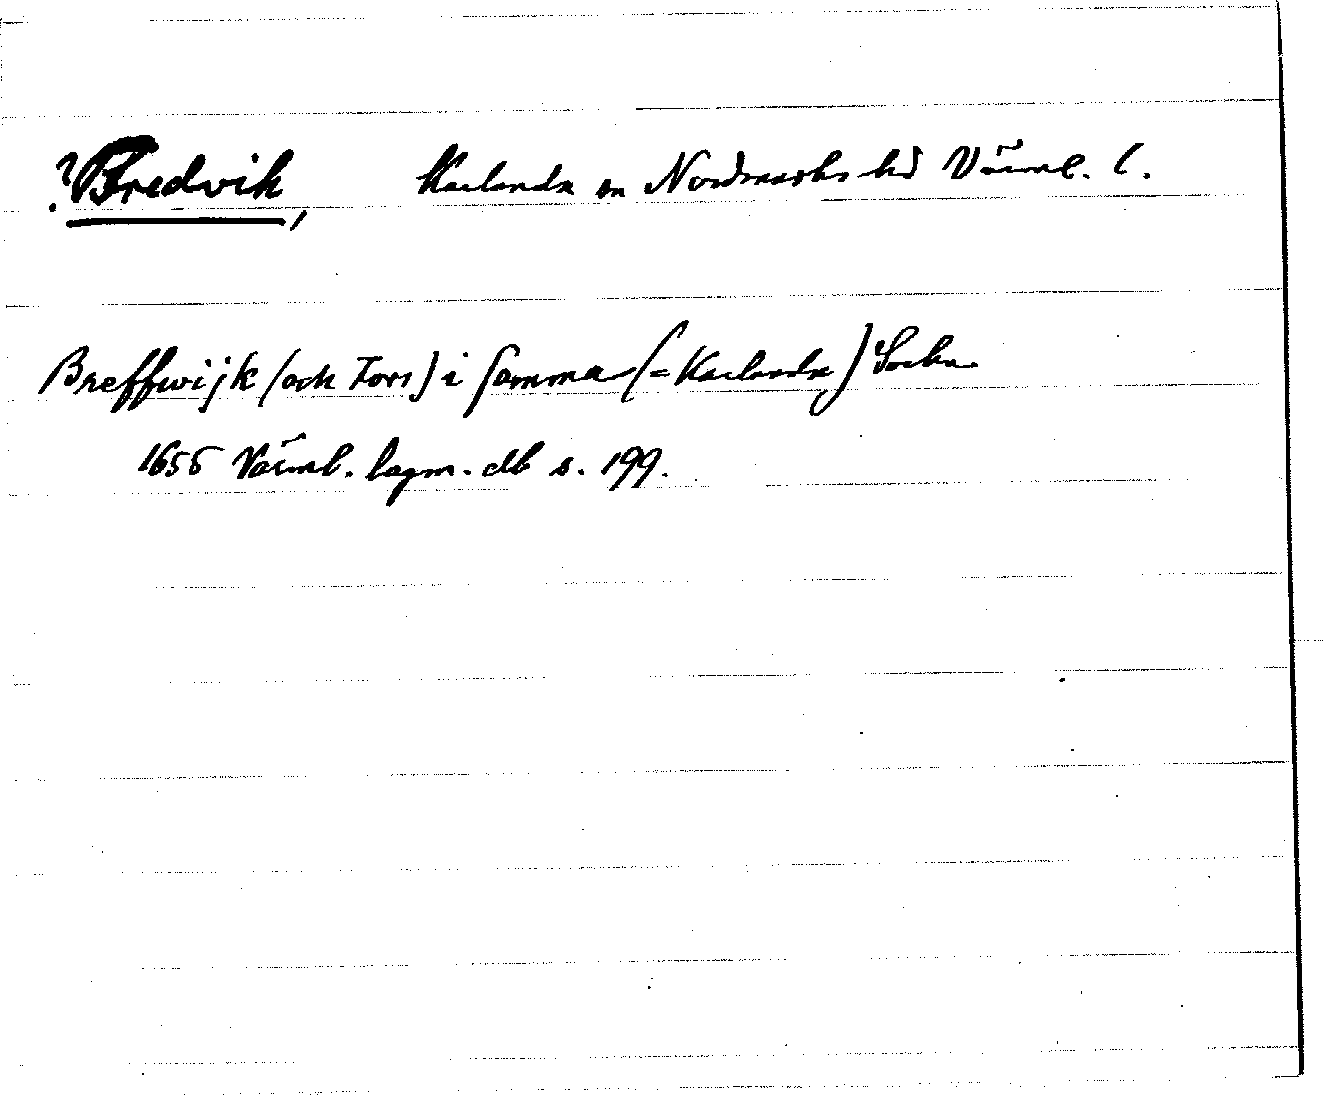 ? Bredvik, Karlanda sn Nordmarks hd Värml. l.
Breffwijk (och Fors) i samma (= Karlanda) Sockn
1655 Värml. lagm. db s. 199.